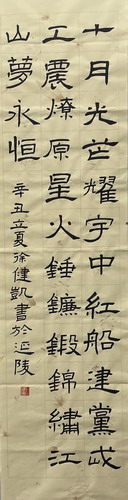 十月光芒耀宇中紅船建黨成
工震燎原星火錘鐮鍛錦繡江
山夢永恒
辛丑立夏徐健凱書於延陵